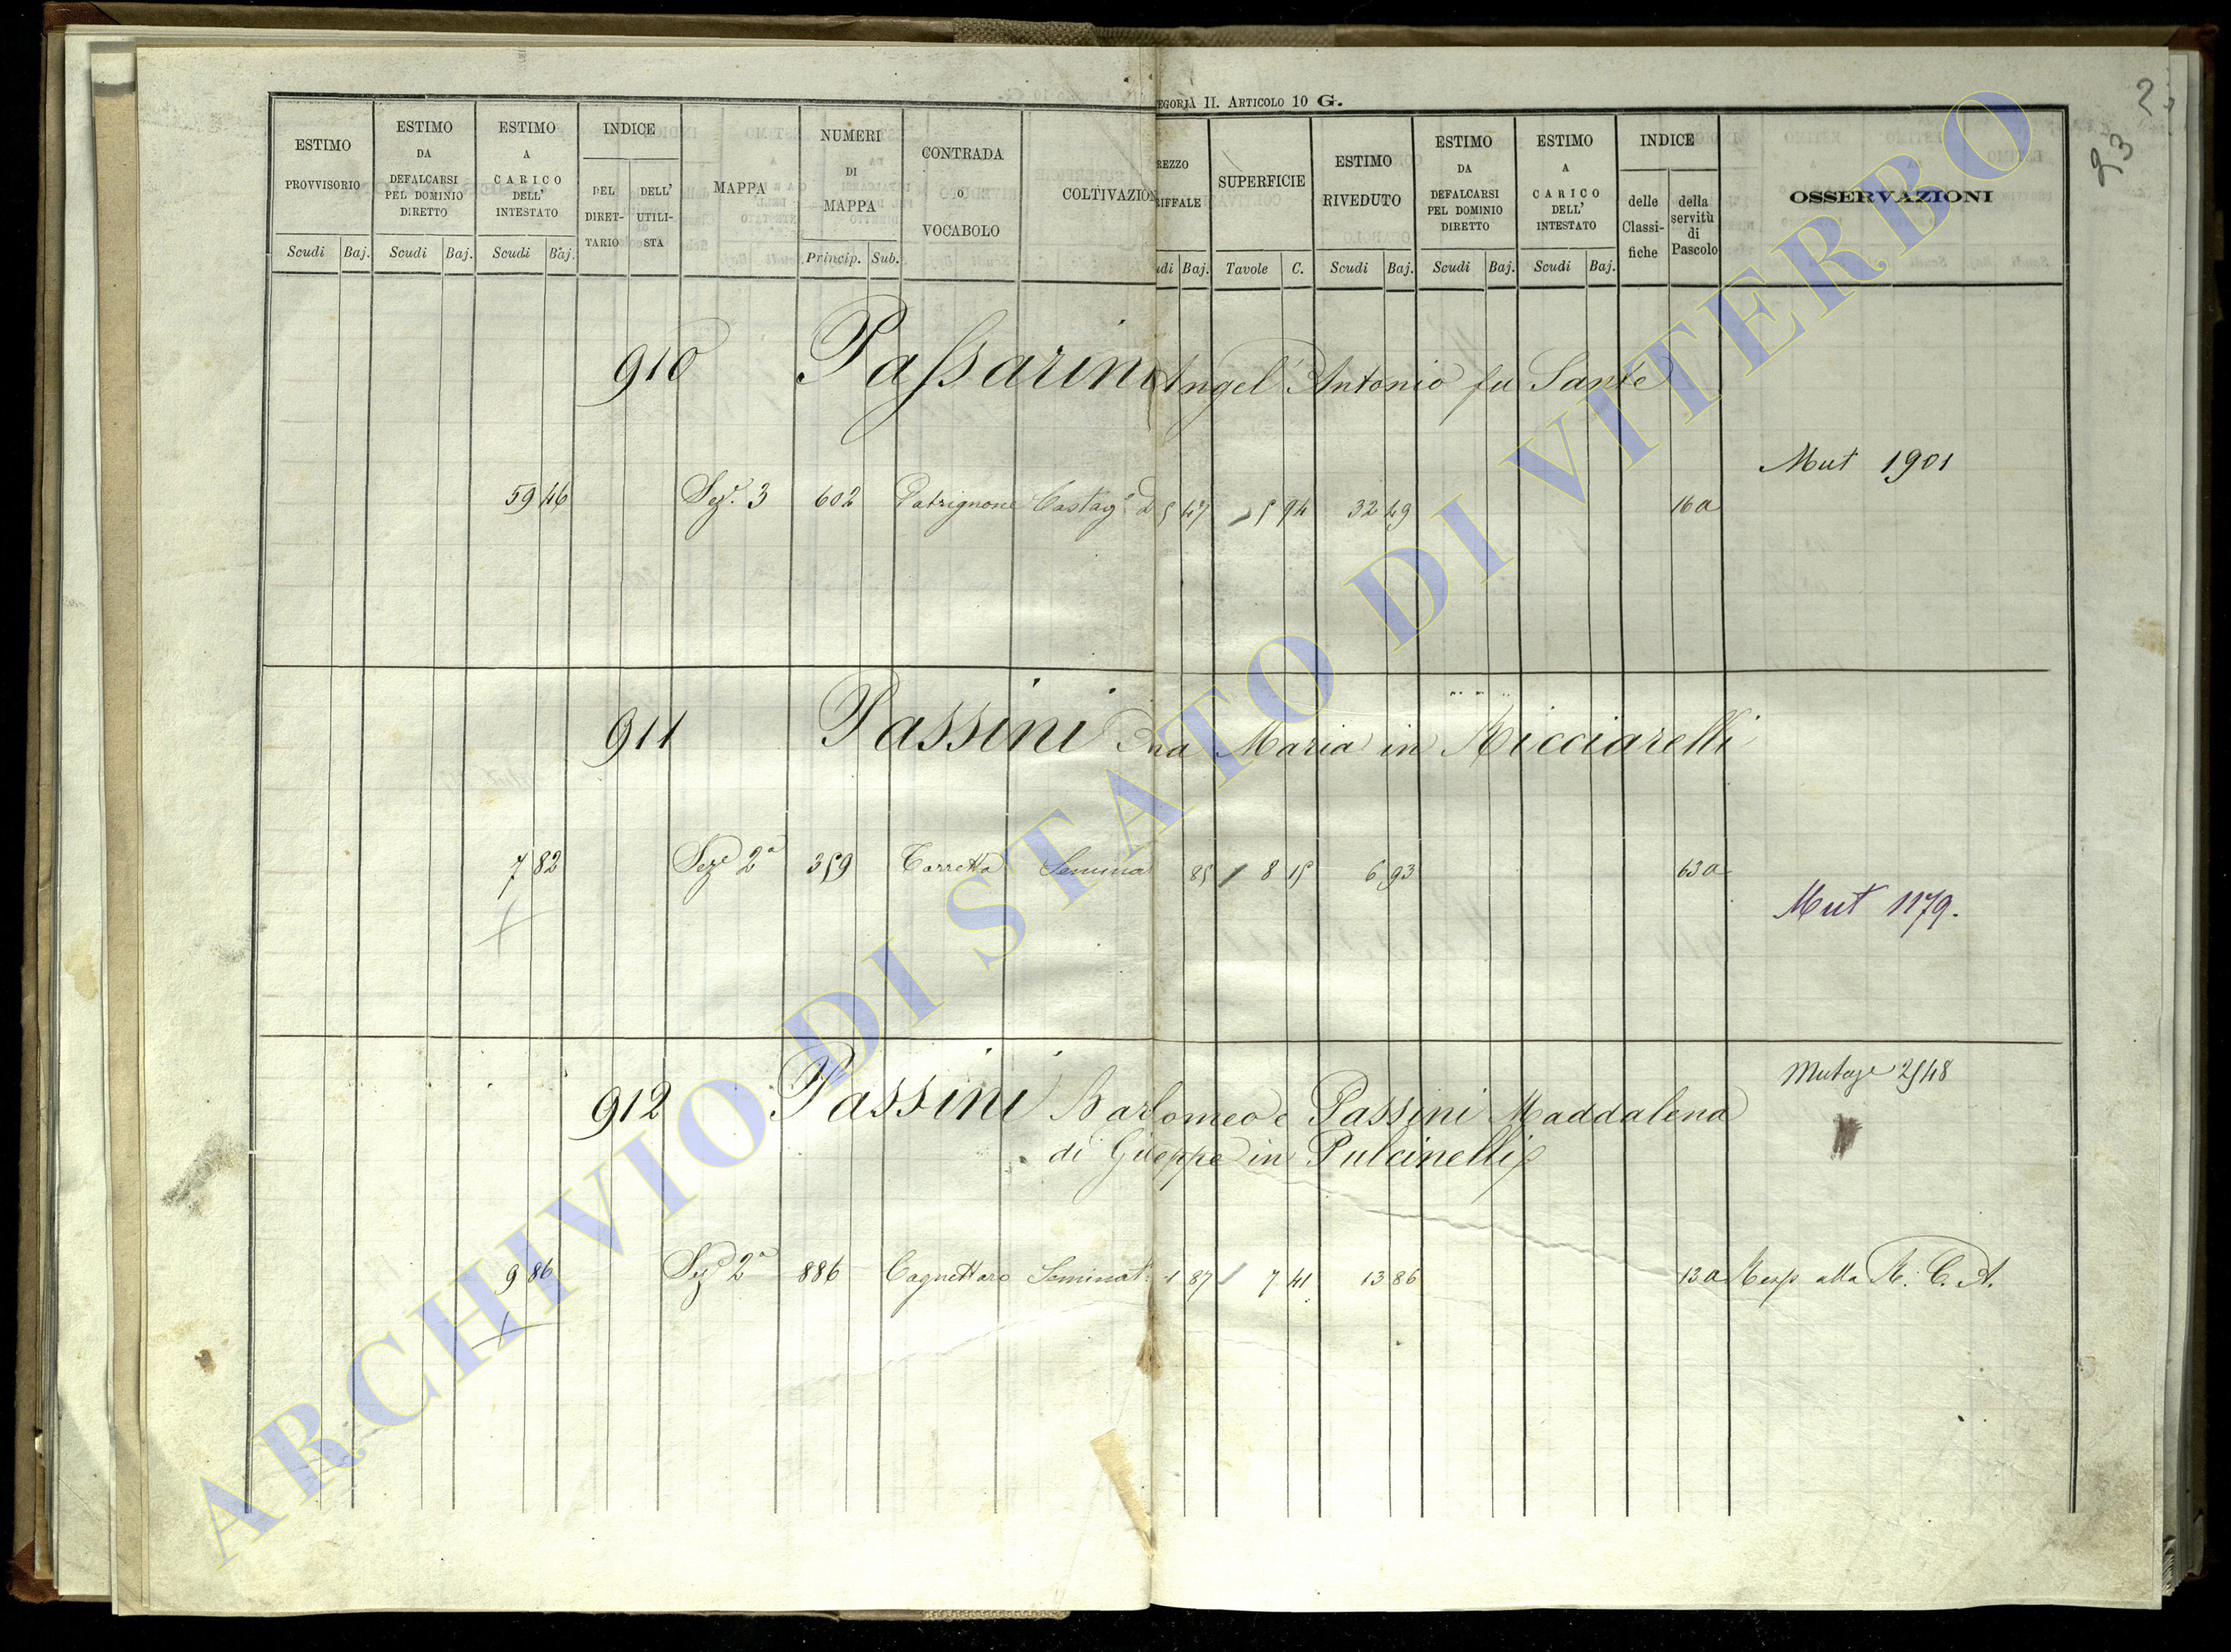 EGORIA II. ARTICOLO 10 G.
23
ESTIMO PROVVISORIO
ESTIMO DA DEFALCARSI PEL DOMINIO DIRETTO
ESTIMO A CARICO DELL' INTESTATO
INDICE
DEL DIRET-TARIO
DELL' UTILI-STA
MAPPA
NUMERI DI MAPPA
CONTRADA o VOCABOLO
COLTIVAZION
REZZO RIFFALE
SUPERFICIE
ESTIMO RIVEDUTO
ESTIMO DA DEFALCARSI PEL DOMINIO DIRETTO
ESTIMO A CARICO DELL' INTESTATO
INDICE
delle Classi-fiche
della servitù di Pascolo
OSSERVAZIONI
Scudi Baj. Scudi Baj. Scudi Baj. Princip. Sub. udi Baj. Tavole C. Scudi Baj. Scudi Baj. Scudi Baj.
910 Passarini Angel'Antonio fu Sante
Mut 1901
59 46 Sez. 3 602 Patrignone Castag. 5 47 5 94 32 49 16a
911 Passini Maria in Ricciarelli
7 82 Seze 2a 359 Torretta Semina 85 8 15 6 93 63a
Mut 1179.
Mutaze 2548
912 Passini Barlomeo e Passini Maddalena
di Giuseppe in Pulcinelli
9 86 Seze 2a 886 Cagnettaro Seminat. 1 87 7 41 13 86 13a Resp alla R. C. A.
ARCHIVIO DI STATO DI VITERBO